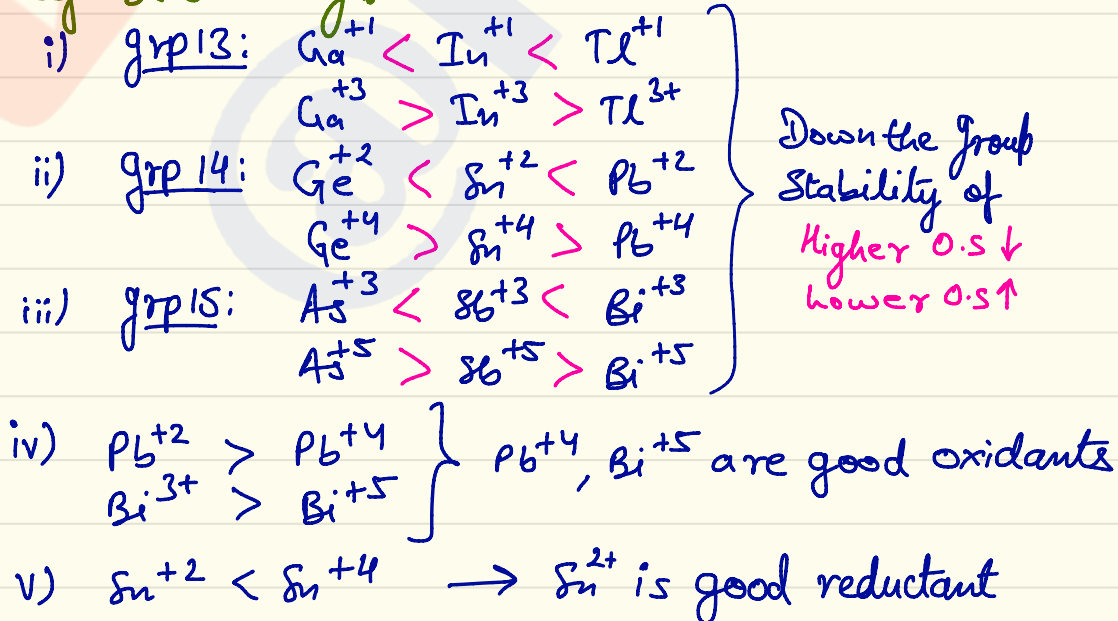 i) grp 13: Ga+1 < In+1 < Tl+1
Ga+3 > In+3 > Tl3+
ii) grp 14: Ge+2 < Sn+2 < Pb+2
Ge+4 > Sn+4 > Pb+4
iii) grp 15: As+3 < Sb+3 < Bi+3
As+5 > Sb+5 > Bi+5
Down the group
Stability of
Higher O.S ↓
Lower O.S ↑
iv) Pb+2 > Pb+4
Bi3+ > Bi+5
Pb+4, Bi+5 are good oxidants
v) Sn+2 < Sn+4 → Sn2+ is good reductant